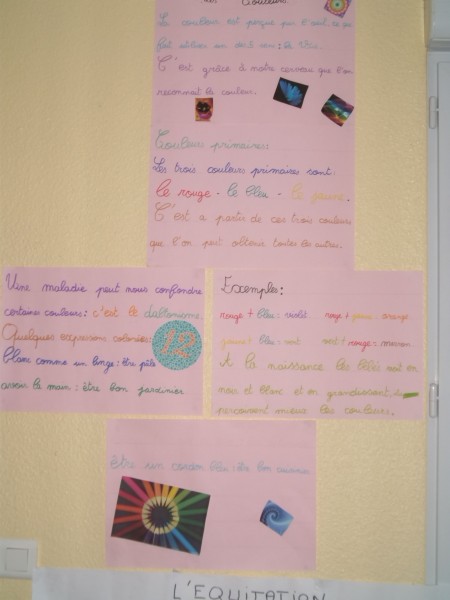 les Couleurs
La couleur est perçue par l'oeil, ce qui
fait utiliser un de 5 sens : la vue.
C'est grâce à notre cerveau que l'on
reconnait la couleur.
Couleurs primaires:
Les trois couleurs primaires sont:
le rouge - le bleu - le jaune.
C'est a partir de ces trois couleurs
que l'on peut obtenir toutes les autres.
Une maladie peut nous confondre
certaines couleurs: c'est le daltonisme.
Quelques expressions colorées:
12
blanc comme un linge: être pâle
avoir la main : être bon jardinier
Exemples:
rouge + bleu = violet rouge + jaune = orange
jaune + bleu = vert vert + rouge = marron
A la naissance les bébé voit en
noir et blanc et en grandissant, ils
perçoivent mieux les couleurs.
être un cordon bleu : être bon cuisinier
L'EQUITATION